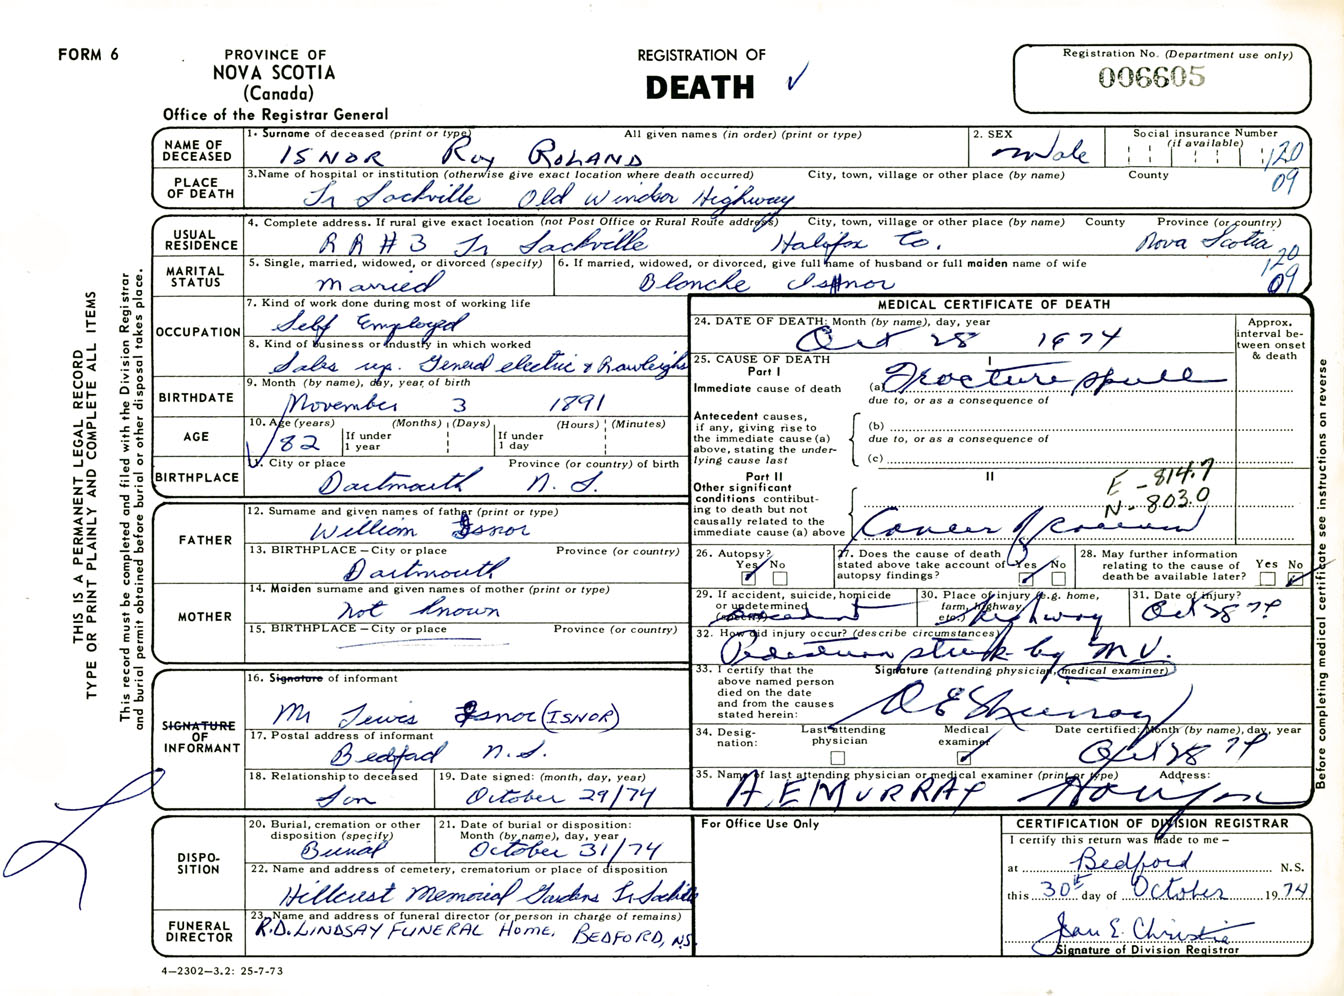 FORM 6
PROVINCE OF
NOVA SCOTIA
(Canada)
Office of the Registrar General
REGISTRATION OF
DEATH
Registration No. (Department use only)
006605
THIS IS A PERMANENT LEGAL RECORD
TYPE OR PRINT PLAINLY AND COMPLETE ALL ITEMS
This record must be completed and filed with the Division Registrar
and burial permit obtained before burial or other disposal takes place.
NAME OF DECEASED
1. Surname of deceased (print or type) All given names (in order) (print or type)
ISNOR Roy ROLAND
2. SEX
Male
Social insurance Number
(if available)
120
09
PLACE OF DEATH
3. Name of hospital or institution (otherwise give exact location where death occurred) City, town, village or other place (by name) County
Lr Sackville Old Windsor Highway
USUAL RESIDENCE
4. Complete address. If rural give exact location (not Post Office or Rural Route address) City, town, village or other place (by name) County Province (or country)
RR # 3 Lr Sackville Halifax Co. Nova Scotia
120
09
MARITAL STATUS
5. Single, married, widowed, or divorced (specify)
Married
6. If married, widowed, or divorced, give full name of husband or full maiden name of wife
Blanche Isnor
OCCUPATION
7. Kind of work done during most of working life
Self Employed
8. Kind of business or industry in which worked
Sales rep. General electric & Rawleighs
BIRTHDATE
9. Month (by name), day, year of birth
November 3 1891
AGE
10. Age (years) (Months) (Days) (Hours) (Minutes)
82 If under 1 year If under 1 day
BIRTHPLACE
11. City or place Province (or country) of birth
Dartmouth N.S.
FATHER
12. Surname and given names of father (print or type)
William Isnor
13. BIRTHPLACE – City or place Province (or country)
Dartmouth
MOTHER
14. Maiden surname and given names of mother (print or type)
not known
15. BIRTHPLACE – City or place Province (or country)
SIGNATURE OF INFORMANT
16. Signature of informant
Mr Lewis Isnor (ISNOR)
17. Postal address of informant
Bedford N.S.
18. Relationship to deceased
Son
19. Date signed: (month, day, year)
October 29/74
DISPOSITION
20. Burial, cremation or other disposition (specify)
Burial
21. Date of burial or disposition: Month (by name), day, year
October 31/74
22. Name and address of cemetery, crematorium or place of disposition
Hillcrest Memorial Gardens Lr Sackville
FUNERAL DIRECTOR
23. Name and address of funeral director (or person in charge of remains)
R.D. LINDSAY FUNERAL HOME. BEDFORD, NS.
4–2302–3.2: 25-7-73
MEDICAL CERTIFICATE OF DEATH
24. DATE OF DEATH: Month (by name), day, year
Oct 28 1974
Approx. interval between onset & death
25. CAUSE OF DEATH
Part I
I
Immediate cause of death
(a) Fracture skull
due to, or as a consequence of
Antecedent causes, if any, giving rise to the immediate cause (a) above, stating the underlying cause last
(b)
due to, or as a consequence of
(c)
Part II
II
Other significant conditions contributing to death but not causally related to the immediate cause (a) above
E - 814.7
N - 803.0
Cancer of
26. Autopsy?
Yes No
27. Does the cause of death stated above take account of autopsy findings?
Yes No
28. May further information relating to the cause of death be available later?
Yes No
29. If accident, suicide, homicide or undetermined (specify)
accident
30. Place of injury (e.g. home, farm, highway etc.)
highway
31. Date of injury?
Oct 28 74
32. How did injury occur? (describe circumstances)
Pedestrian struck by M.V.
33. I certify that the above named person died on the date and from the causes stated herein:
Signature (attending physician, medical examiner)
A E Murray
34. Designation:
Last attending physician
Medical examiner
Date certified: Month (by name), day, year
Oct 28 74
35. Name of last attending physician or medical examiner (print or type) Address:
A. E MURRAY Halifax
Before completing medical certificate see instructions on reverse
For Office Use Only
CERTIFICATION OF DIVISION REGISTRAR
I certify this return was made to me –
at Bedford N.S.
this 30th day of October 1974
Jean E. Christie
Signature of Division Registrar